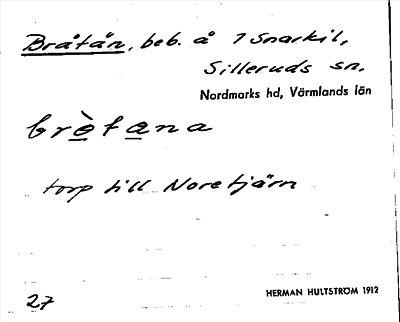 Bråtån, beb. å 7 Snarkil,
Silleruds sn.
Nordmarks hd, Värmlands län
brètana
torp till Noretjärn
27
HERMAN HULTSTRÖM 1912